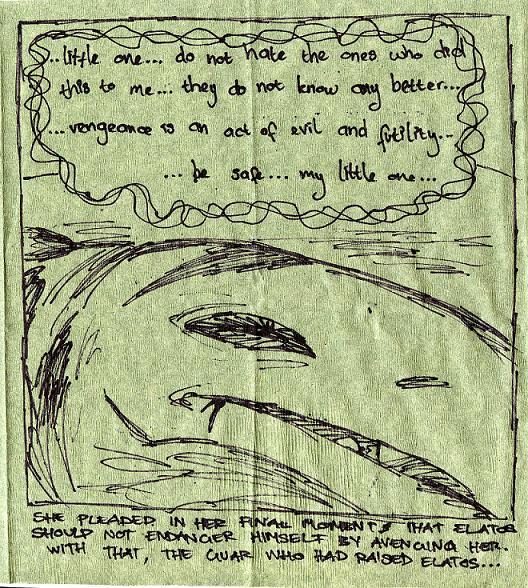 ...little one... do not hate the ones who did
this to me... they do not know any better...
...vengeance is an act of evil and futility...
... be safe... my little one...
SHE PLEADED IN HER FINAL MOMENTS THAT ELATOS
SHOULD NOT ENDANGER HIMSELF BY AVENGING HER.
WITH THAT, THE CUAR WHO HAD RAISED ELATOS...